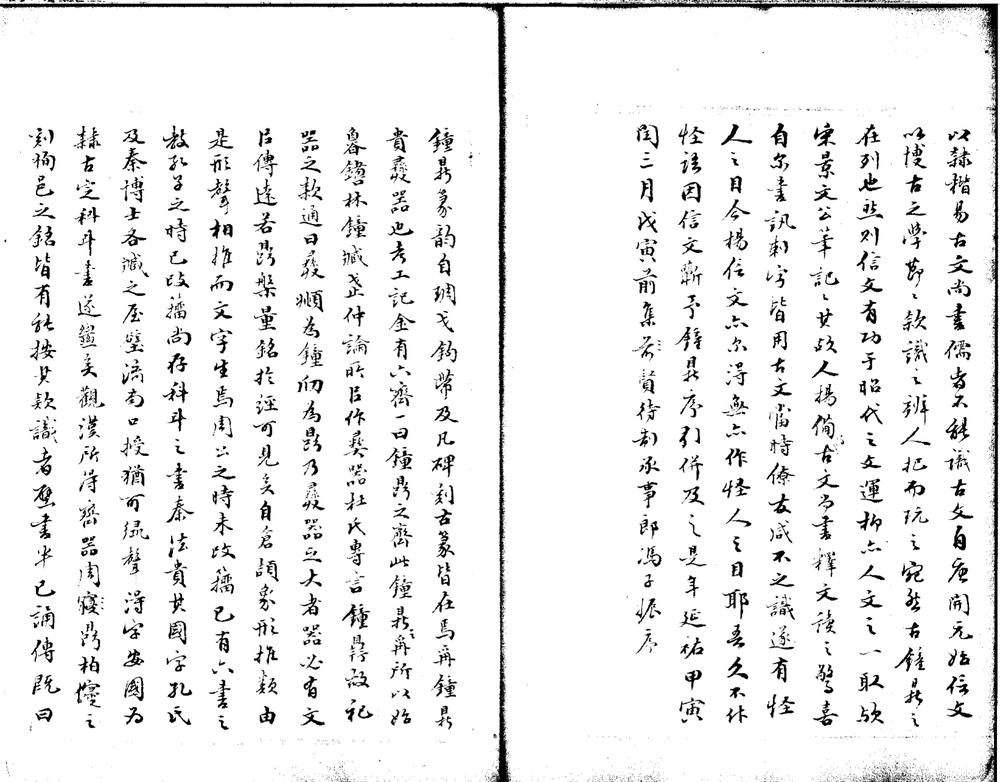 以隸楷易古文尚書儒者不能識古文自唐開元始信文
以博古之學勤〻款識之辨人把而玩之宛然古鐘鼎之
在列也然則信文有功于昭代之文運抑亦人文之一取歟
宋景文公筆記〻其故人楊備古文尚書釋文讀之驚喜
自尔書訊刺字皆用古文當時僚友咸不之識遂有怪
人之目今楊信文亦尔得無亦作怪人之目耶吾久不作
怪語因信文蘄予鐘鼎序引併及之是年延祐甲寅
閏三月戊寅前集賢待制承事郎馮子振序
鐘鼎篆韵自琱戈鈎帶及凡碑刻古篆皆在焉冓鐘鼎
貴彞器也考工記金有六齊一曰鐘鼎之齊此鐘鼎冓所以始
魯鑄林鐘臧武仲論所㠯作彞器杜氏專言鐘鼎故祀
器之款通曰彞㼵為鐘仞為鼎乃彞器之大者器必有文
㠯傳遠若鼎槃量銘於經可見矣自倉頡象形推類由
是形聲相推而文字生焉周公之時未改籒已有六書之
教孔子之時已改籒尚存科斗之書秦法貴其國字孔氏
及秦博士各藏之屋壁濟南口授猶可緣聲得字安國為
隸古定科斗書遂盡矣觀漢所得齊器周寢鼎柏寢之
刻栒邑之銘皆有能按其款識者壁書半已誦傳既曰